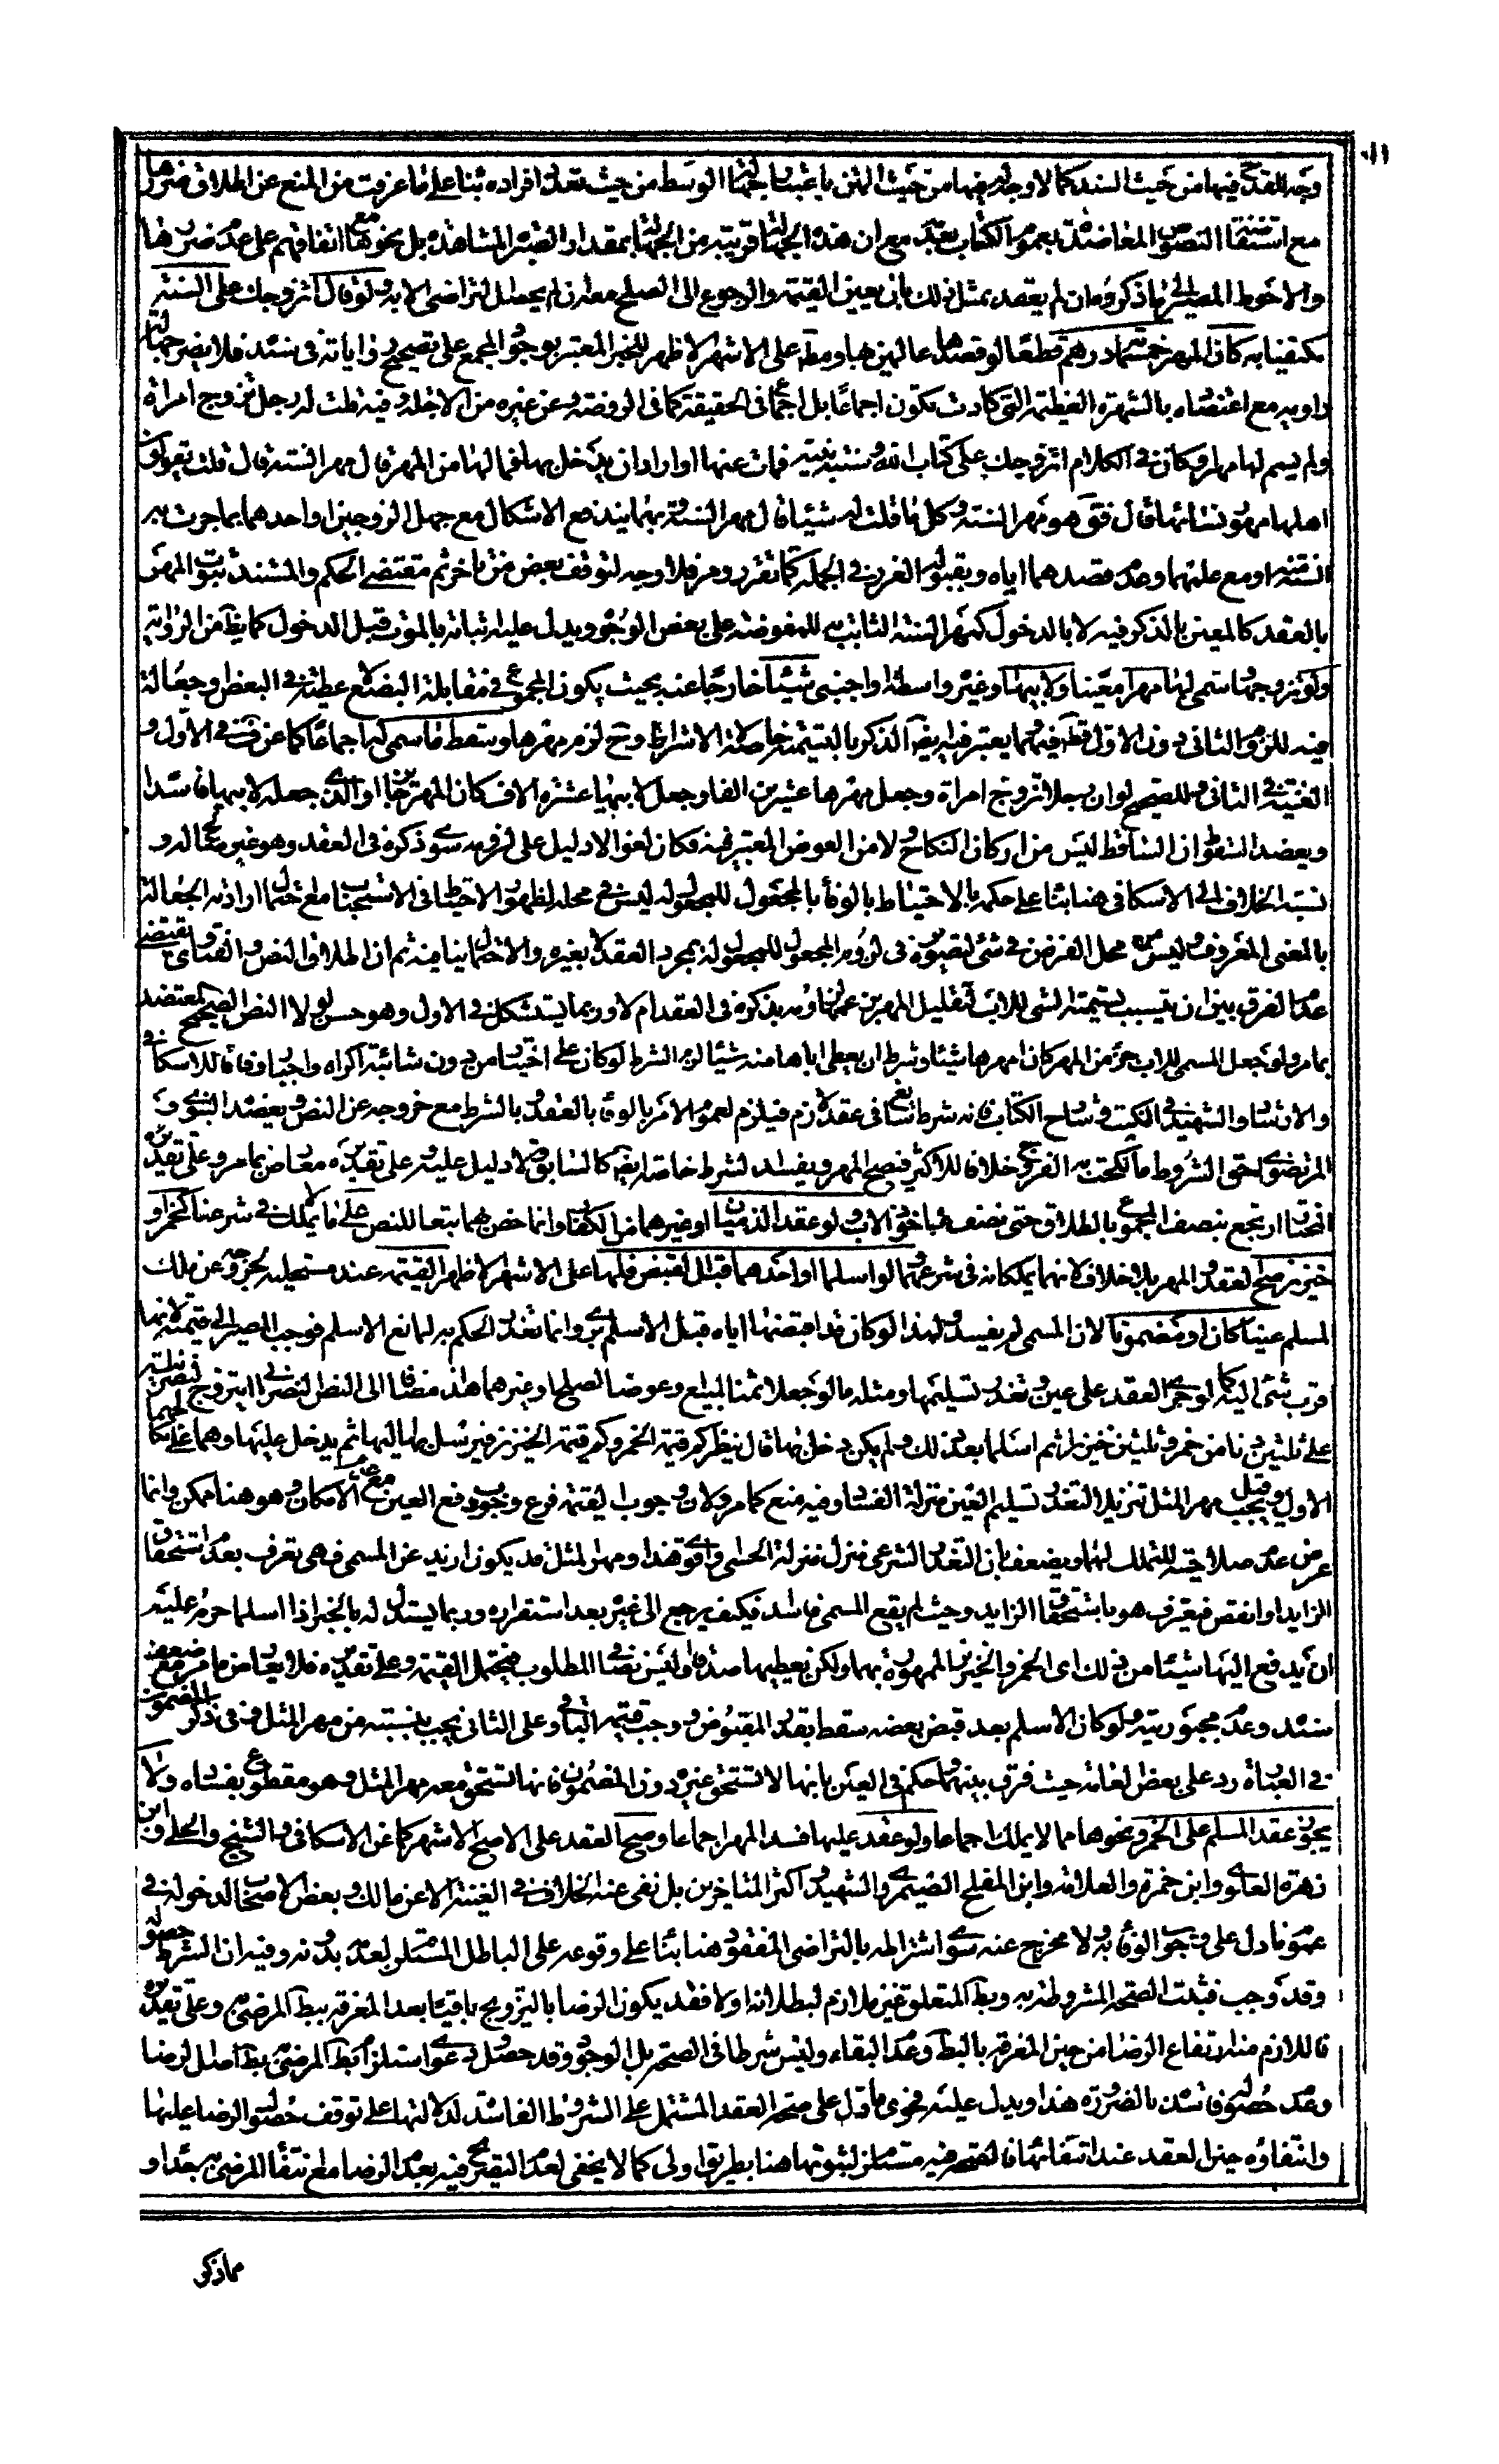 وجه للقدح فيها من حيث السند كما لا وجه له فيها من حيث المتن باعتبار جهالة الوسط من حيث تعدد افراده بناء على ما عرفت من المنع عن اطلاق ضررها
مع استفاضة النصوص المعاضدة بعموم الكتاب بعد مع ان هذه الجهالة قريبة من الجهالة بمقدار الصبرة المشاهدة بل نحوها مع اتفاقهم على عدم ضررها
والاحوط المصير الى ما ذكروه وان لم يقصد بمثل ذلك بان يعين القيمة والرجوع الى الصلح معه ان لم يحصل التراضى الا به ولو قال اتزوجك على السنة
كان المهر خمسمائة درهم قطعا لو قصدها عالمين بها ومطلقا على الاشهر الاظهر للخبر المعتبر بوجود المجمع على تصحيح رواياته فى سنده فلا يضر جهالة
راويه مع اعتضاده بالشهرة العظيمة التى كادت تكون اجماعا بل اجماع فى الحقيقة كما فى الروضة وعن غيره من الاجلة وفيه قلت له رجل تزوج امراة
ولم يسم لها مهرا وكان فى الكلام اتزوجك على كتاب الله وسنة نبيه فمات عنها او اراد ان يدخل بها فما لها من المهر قال مهر السنة قال قلت يقولون
اهلها مهور نسائها قال فقال هو مهر السنة وكل ما قلت له شيئا قال مهر السنة وبهما يندفع الاشكال مع جهل الزوجين او احدهما بما جرت به
السنة او مع علمهما وعدم قصدهما اياه وبقبوله الغرر فى الجملة كما تقرر ومر فلا وجه لتوقف بعض من تاخر ثم مقتضى الحكم والمستند ثبوت المهر
بالعقد كالمعين بالذكر فيه لا بالدخول كمهر السنة الثابت به للمفوضة على بعض الوجوه ويدل عليه اثباته بالموت قبل الدخول كما يظهر من الرواية
ولو تزوجها وسمى لها مهرا معينا ولابيها او غيره واسطة او اجنبى شيئا خارجا عنه بحيث يكون المجموع فى مقابلة البضع لا عطية فى البعض او جعالة
فيه للزوم الثانى دون الاول قطعا فيهما يعتبر فيه الذكر بالتيمنه خاصة لا الاشتراط وح لزم مهرها وسقط ما سمى لهما اجماعا كما عن ف فى الاول و
الغنية فى الثانى وللصحيح لو ان رجلا تزوج امراة وجعل مهرها عشرين الفا وجعل لابيها عشرة الاف كان المهر جائزا والذى جعله لابيها فاسدا
ويعضد السقوط ان الساقط ليس من اركان النكاح ولا من العوض المعتبر فيه فكان لغوا لا دليل على لزومه سوى ذكره فى العقد وهو غير مجد له و
نسبة الخلاف الى الاسكافى هنا بناء على حكمه بالاحتياط بالوفاء بالمجعول للمجعول له ليس فى محله لظهور الاحتياط فى الاستحباب مع احتمال ارادته الجعالة
بالمعنى المعروف وليس من محل الفرض فى شئ لتصويره فى لزوم المجعول للمجعول له بمجرد العقد لا بغيره والاحتمال بنا فيه ثم ان اطلاق النص والفتاوى يقتضى
عدم الفرق بين ان يتسبب تسمية الشى للاب تقليل المهر بزعمها او مر يذكره فى العقد ام لا وربما يستشكل فى الاول وهو حسن لولا النص الصحيح المعتضد
بما مر ولو جعل المسمى للاب جزء من المهر كان امهرها شيئا وشرط ان يعطى اباها منه شيئا لزم الشرط لو كان على اختيارها من دون شائبة اكراه واجبار وفاقا للاسكافى
والارشاد والشهيد فى النكت وشارح الكتاب فانه شرط سائغ فى عقد لازم فيلزم لعموم الامر بالوفاء بالعقود بالشرط مع خروجه عن النص ويعضده النبوى و
المرتضوى احق الشروط ما نكحت به الفروج خلافا للاكثر فيصح المهر ويفسد الشرط خاصة للخبر كالسابق ولا دليل عليه وعلى تقديره معارض بما مر وعلى تقدير
المختار ارتجع بنصف المجموع بالطلاق حتى نصف ما اخذه الاب ولو عقد الذميان او غيرهما من الكفار وانما خص بهما تبعا للنص على ما لا يملك فى شرعنا كخمر او
خنزير صح العقد والمهر بلا خلاف لانهما يملكانه فى شرعهما ولو اسلما او احدهما قبل القبض فلها على الاشهر الاظهر القيمة عند مستحليه لخروجه عن ملك
المسلم عينا كان او مضمونا لان المسمى لم يفسد ولهذا لو كان قد اقبضها اياه قبل الاسلام برئ وانما تعذر الحكم به لمانع الاسلام فوجب المصير الى قيمته لانها
اقرب شئ اليه كما لو جرى العقد على عين وتعذر تسليمها ومثله ما لو جعلاه ثمنا لمبيع وعوضا لصلح او غيرهما هذا مضافا الى النص لنصرانى تزوج نصرانية
على ثلثين دنا من خمر وثلثين خنزيرا ثم اسلما بعد ذلك ولم يكن دخل بها قال ينظر كم قيمة الخمر وكم قيمة الخنزير فيرسل بها اليها ثم يدخل عليها وهما على نكاحهما
الاول وقيل يجب مهر المثل تنزيلا لتعذر تسليم العين منزلة الفساد وفيه منع كما مر ولان وجوب القيمة فرع وجوب دفع العين مع الامكان وهو هنا ممكن وانما
عرض عدم صلاحيته للتملك لهما ويضعف بان التعذر الشرعى منزل منزلة الحسى او اقوى هذا ومهر المثل قد يكون ازيد عن المسمى فهى تعترف بعدم استحقاق
الزايد او انقص فيعترف هو باستحقاق الزايد وحيث لم يقع المسمى فاسدا فكيف يرجع الى غيره بعد استقراره وربما يستدل له بالخبر اذا اسلما حرم عليه
ان يدفع اليها شيئا من ذلك اى الخمر والخنزير الممهورة بهما ولكن يعطيها صداقا وليس نصا فى المطلوب فيحتمل القيمة وعلى تقديره فلا يعارض ما مر مع ضعف
سنده وعدم مجبوريته ولو كان الاسلام بعد قبض بعضه سقط بقدر المقبوض ووجب قيمة الباقى وعلى الثانى يجب بنسبته من مهر المثل وفى ذكر المضمون
فى العبارة رد على بعض العامة حيث فرق بينهما وحكم فى العين بانها لا تستحق غيره دون المضمون فانها تستحق معه مهر المثل وهو مقطوع بفساده ولا
يجوز عقد المسلم على الخمر ونحوها مما لا يملك اجماعا ولو عقد عليها فسد المهر اجماعا وصح العقد على الاصح الاشهر كما عن الاسكافى والشيخ والحلى وابن
زهرة العلوى وابن حمزة والعلامة وابن المفلح الصيمرى والشهيد واكثر المتاخرين بل نفى عنه الخلاف فى الغنية الا عن مالك وبعض الاصحاب لدخوله فى
عموم ما دل على وجوب الوفاء به ولا مخرج عنه سوى اشتراطه بالتراضى المفقود هنا بناء على وقوعه على الباطل المستلزم لعدمه بدونه وفيه ان الشرط حصوله
وقد وجب فثبت الصحة المشروطة به وبطلان المتعلق غير ملازم لبطلانه اولا فقد يكون الرضا بالتزويج باقيا بعد المعرفة ببطلان المرضى به وعلى تقديره
فاللازم منه ارتفاع الرضا من حين المعرفة بالبطلان وعدم البقاء وليس شرطا فى الصحة بل الوجود وقد حصل ودعوى استلزام بطلان المرضى به بطلان اصل الرضا
وعدم حصوله فاسدة بالضرورة هذا ويدل عليه فحوى ما دل على صحة العقد المشتمل على الشروط الفاسدة لدلالتها على توقف حصول الرضا عليها
وانتفاؤه حين العقد عند انتفائها فالصحة فيه مستلزم لثبوتها هنا بطريق اولى كما لا يخفى لعدم التصريح فيه بعدم الرضا مع انتفاء المرضى به جدا و
مما ذكر